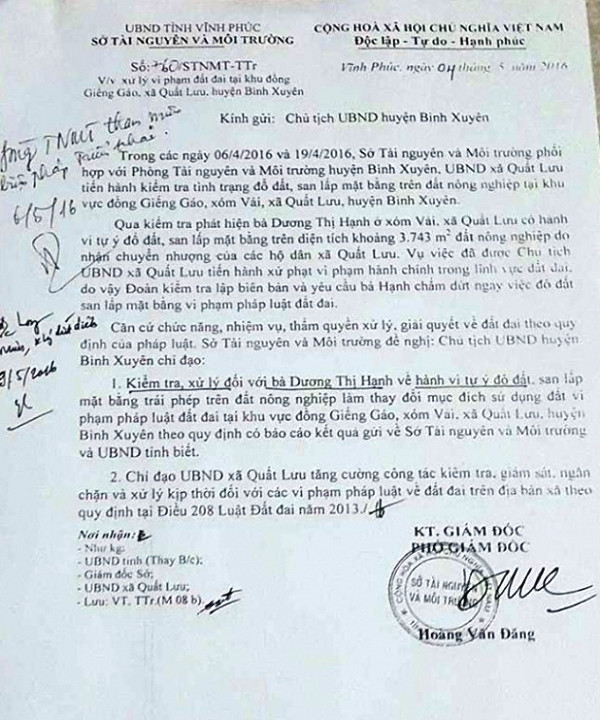 UBND TỈNH VĨNH PHÚC
SỞ TÀI NGUYÊN VÀ MÔI TRƯỜNG
CỘNG HOÀ XÃ HỘI CHỦ NGHĨA VIỆT NAM
Độc lập - Tự do - Hạnh phúc
Số: 760/STNMT-TTr
V/v xử lý vi phạm đất đai tại khu đồng
Giếng Gáo, xã Quất Lưu, huyện Bình Xuyên
Vĩnh Phúc, ngày 04 tháng 5 năm 2016
Kính gửi: Chủ tịch UBND huyện Bình Xuyên
TNMT tham mưu
6/5/16
Trong các ngày 06/4/2016 và 19/4/2016, Sở Tài nguyên và Môi trường phối
hợp với Phòng Tài nguyên và Môi trường huyện Bình Xuyên, UBND xã Quất Lưu
tiến hành kiểm tra tình trạng đổ đất, san lấp mặt bằng trên đất nông nghiệp tại khu
vực đồng Giếng Gáo, xóm Vải, xã Quất Lưu, huyện Bình Xuyên.
Qua kiểm tra phát hiện bà Dương Thị Hạnh ở xóm Vải, xã Quất Lưu có hành
vi tự ý đổ đất, san lấp mặt bằng trên diện tích khoảng 3.743 m² đất nông nghiệp do
nhận chuyển nhượng của các hộ dân xã Quất Lưu. Vụ việc đã được Chủ tịch
UBND xã Quất Lưu tiến hành xử phạt vi phạm hành chính trong lĩnh vực đất đai,
do vậy Đoàn kiểm tra lập biên bản và yêu cầu bà Hạnh chấm dứt ngay việc đổ đất
san lấp mặt bằng vi phạm pháp luật đất đai.
Căn cứ chức năng, nhiệm vụ, thẩm quyền xử lý, giải quyết về đất đai theo quy
định của pháp luật. Sở Tài nguyên và Môi trường đề nghị: Chủ tịch UBND huyện
Bình Xuyên chỉ đạo:
1. Kiểm tra, xử lý đối với bà Dương Thị Hạnh về hành vi tự ý đổ đất, san lấp
mặt bằng trái phép trên đất nông nghiệp làm thay đổi mục đích sử dụng đất vi
phạm pháp luật đất đai tại khu vực đồng Giếng Gáo, xóm Vải, xã Quất Lưu, huyện
Bình Xuyên theo quy định có báo cáo kết quả gửi về Sở Tài nguyên và Môi trường
và UBND tỉnh biết.
2. Chỉ đạo UBND xã Quất Lưu tăng cường công tác kiểm tra, giám sát, ngăn
chặn và xử lý kịp thời đối với các vi phạm pháp luật về đất đai trên địa bàn xã theo
quy định tại Điều 208 Luật Đất đai năm 2013./.
Nơi nhận:
- Như kg;
- UBND tỉnh (Thay B/c);
- Giám đốc Sở;
- UBND xã Quất Lưu;
- Lưu: VT, TTr.(M 08 b).
KT. GIÁM ĐỐC
PHÓ GIÁM ĐỐC
SỞ TÀI NGUYÊN
VÀ MÔI TRƯỜNG
Hoàng Văn Đăng